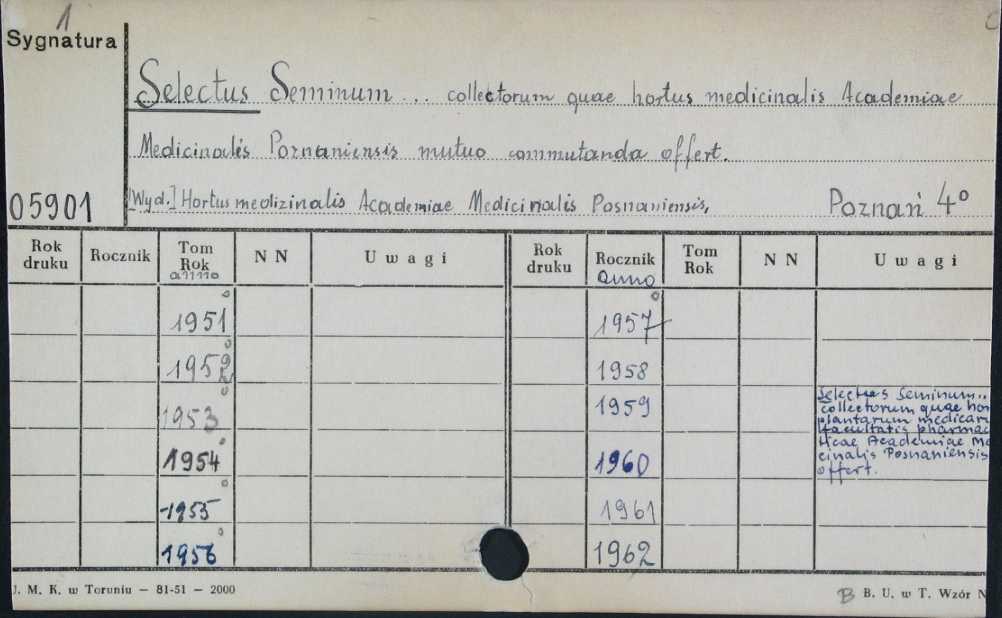 1
Sygnatura
Selectus Seminum... collectorum quae hortus medicinalis Academiae
Medicinalis Poznaniensis mutuo commutanda offert.
05901
[Wyd.] Hortus medizinalis Academiae Medicinalis Posnaniensis, Poznań 4°
Rok druku Rocznik Tom Rok anno NN Uwagi Rok druku Rocznik anno Tom Rok NN Uwagi
1951 1957
1952 1958
1953 1959
Selectus Seminum..
collectorum quae hor
plantarum medicar
facultatis pharmac
ticae Academiae Me
cinalis Posnaniensis
offert.
1954 1960
1955 1961
1956 1962
J. M. K. w Toruniu — 81-51 — 2000
B B. U. w T. Wzór N